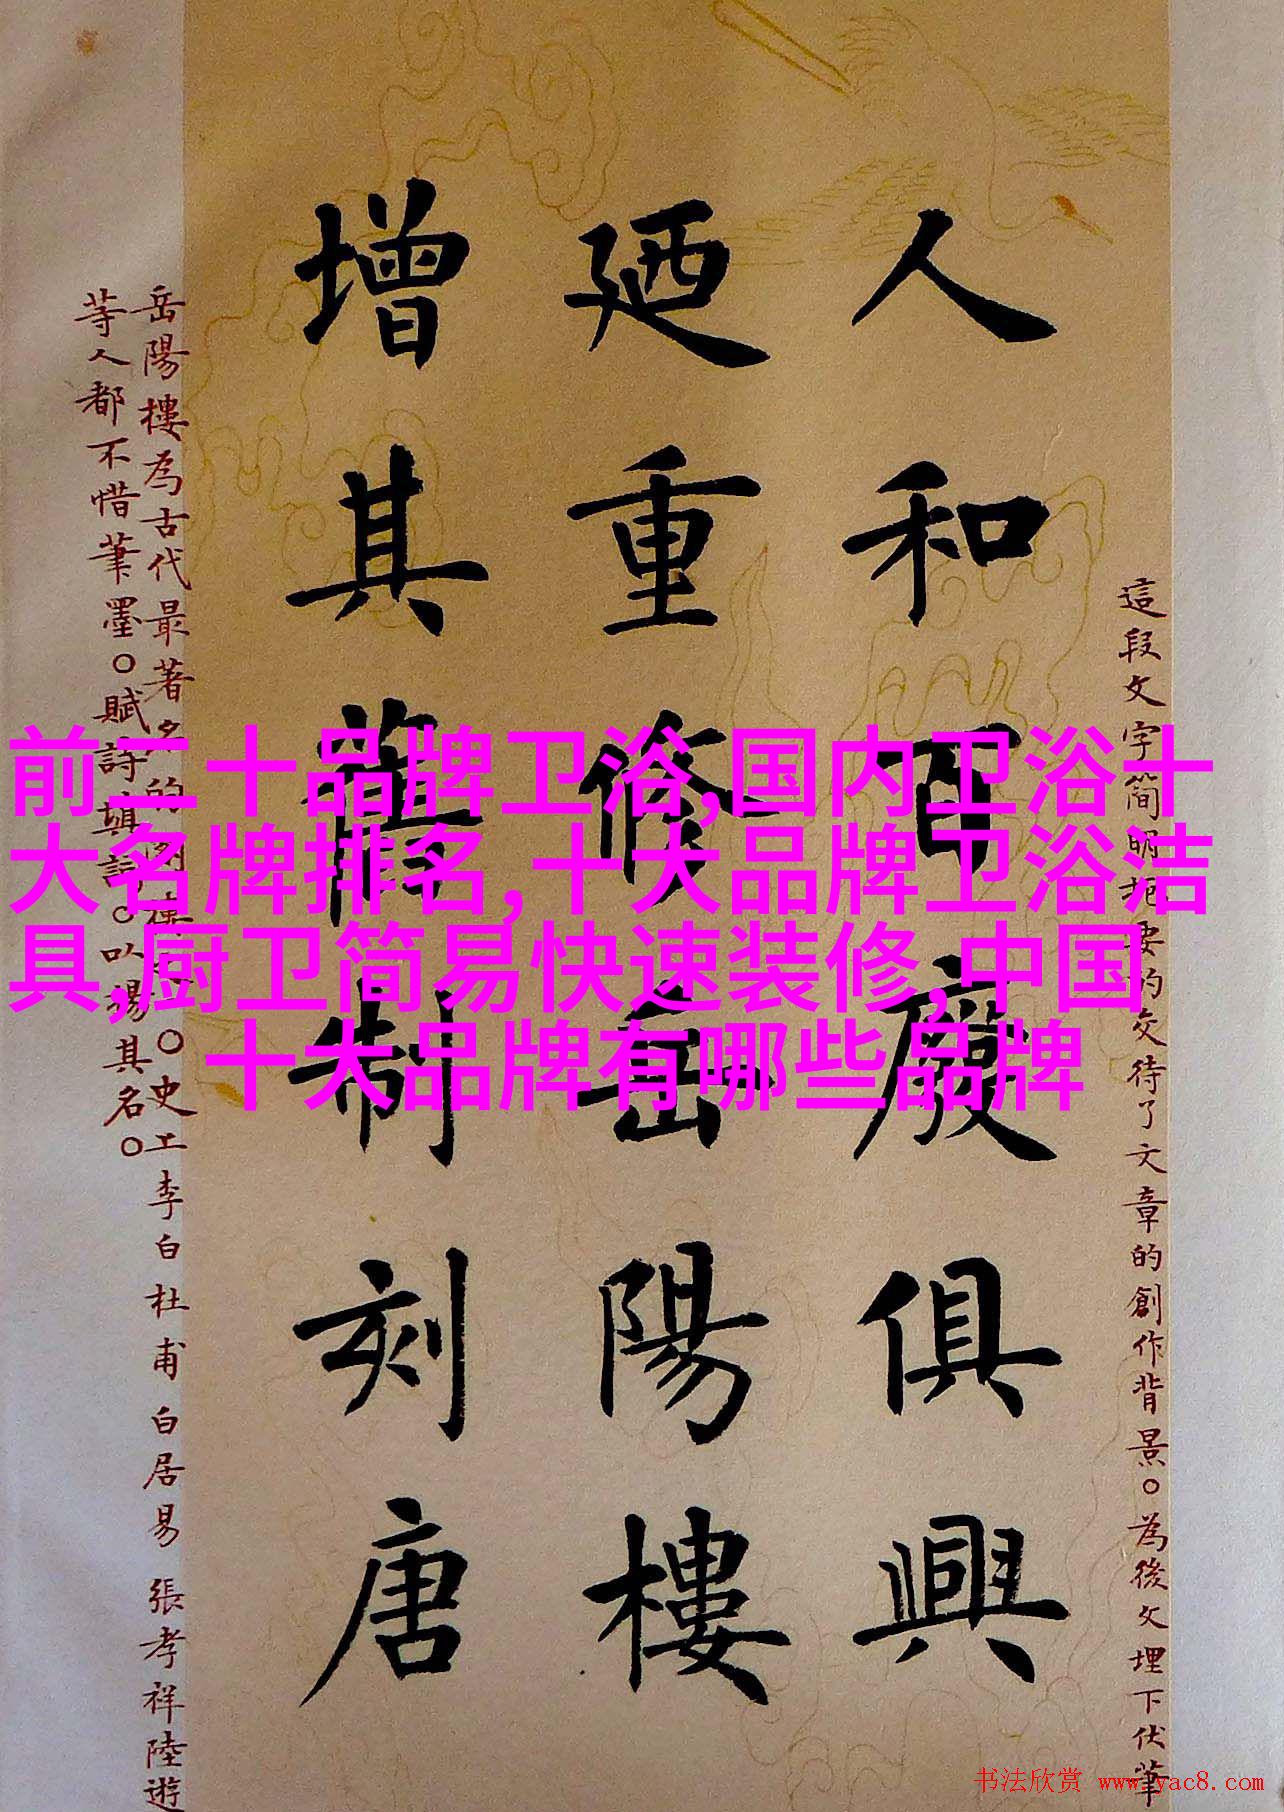 前二十品牌卫浴,国内卫浴十
大名牌排名,十大品牌卫浴洁
具,厨卫简易快速装修,中国
十大品牌有哪些品牌
這段文字简明扼要的交待了文章的創作背景。為後文埋下伏筆
人和百廢俱興
廼重修岳陽樓
增其舊制刻唐
岳陽樓為古代最著名的樓之一。史上李白杜甫白居易張孝祥陸遊
等人都不惜筆墨。賦詩填詞。以揚其名。
书法欣赏 www.yac8.com